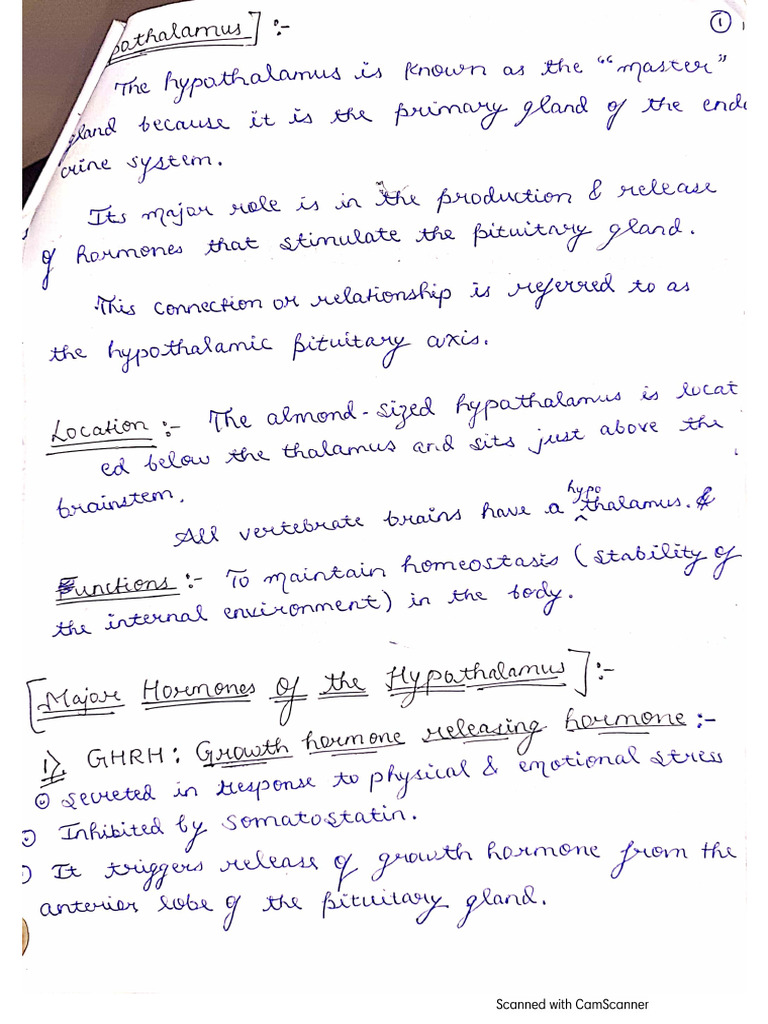 pathalamus] :-
①
The hypathalamus is known as the "master"
gland because it is the primary gland of the endo
crine system.
Its major role is in the production & release
of hormones that stimulate the pituitary gland.
This connection or relationship is referred to as
the hypothalamic pituitary axis.
Location :- The almond-sized hypathalamus is locat
ed below the thalamus and sits just above the
brainstem.
All vertebrate brains have a hypothalamus. &
Functions :- To maintain homeostasis (stability of
the internal environment) in the body.
[Major Hormones of the Hypathalamus] :-
1) GHRH : Growth hormone releasing hormone :-
secreted in response to physical & emotional stress
Inhibited by somatostatin.
It triggers release of growth hormone from the
anterior lobe of the pituitary gland.
Scanned with CamScanner